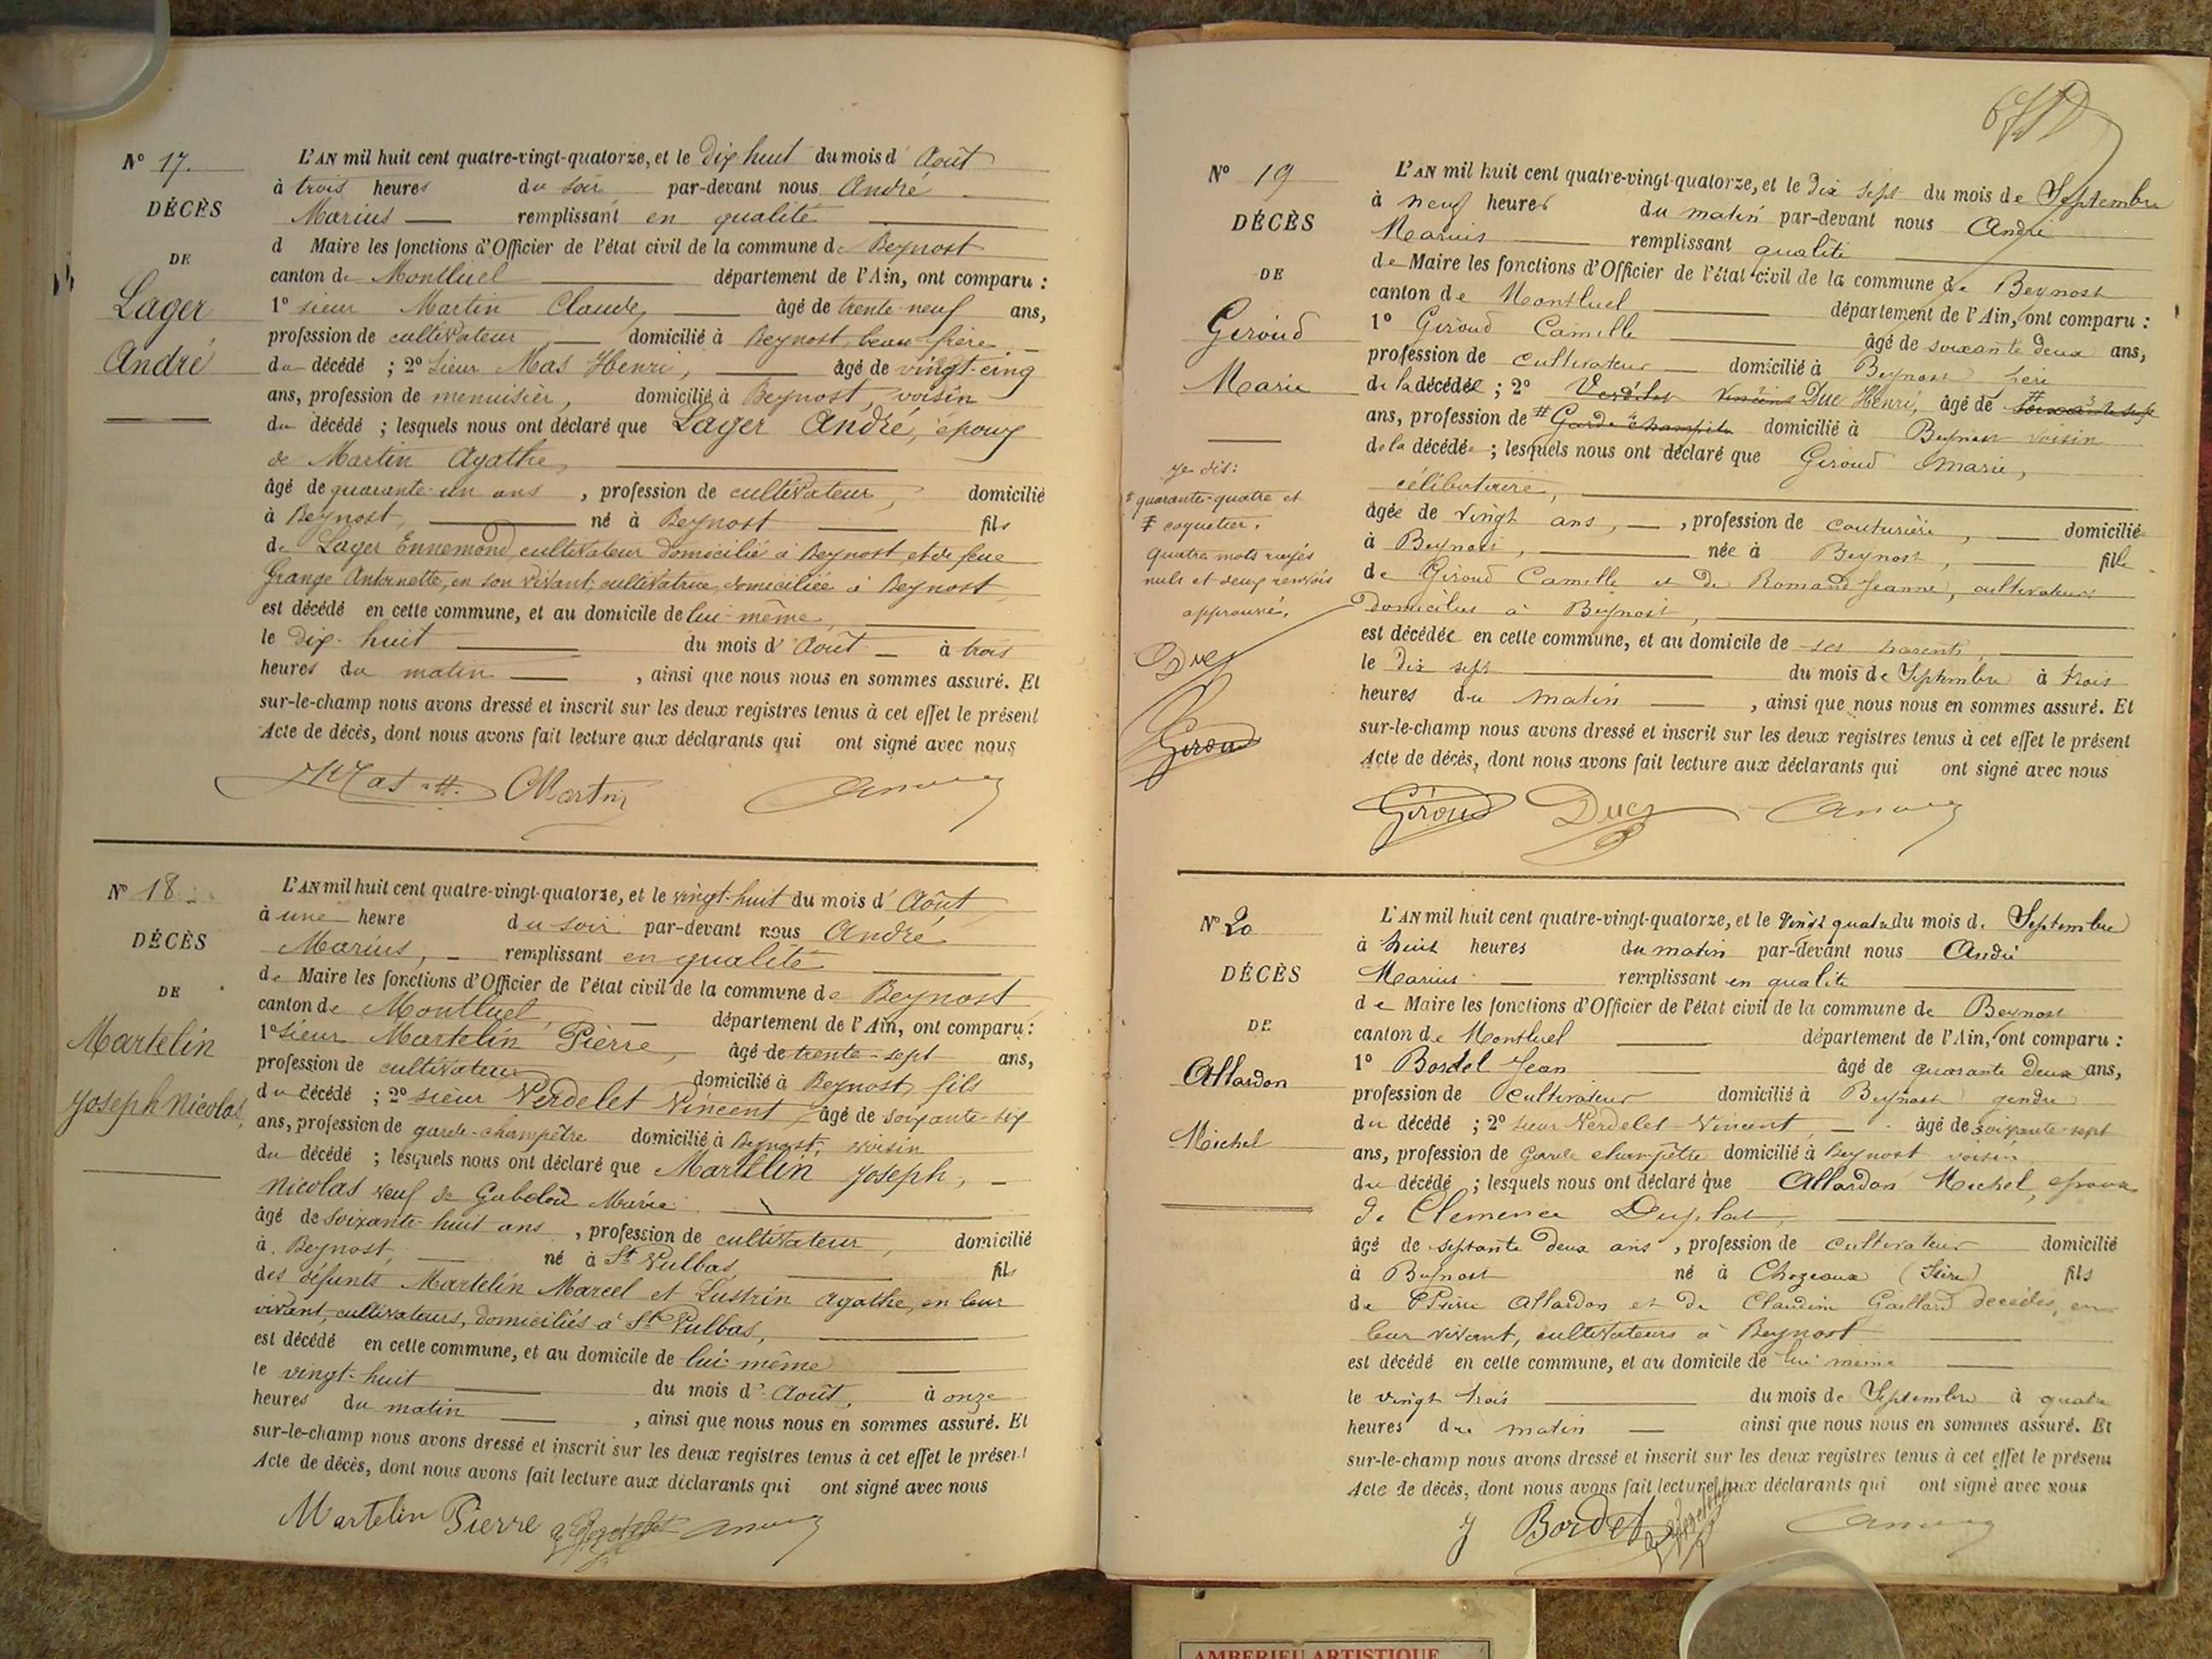 N° 17.
DÉCÈS
DE
Lager
André
L'AN mil huit cent quatre-vingt-quatorze, et le dix huit du mois d'Août
à trois heures du soir par-devant nous André
Marius remplissant en qualité
d Maire les fonctions d'Officier de l'état civil de la commune de Beynost
canton de Montluel département de l'Ain, ont comparu :
1° sieur Martin Claude, âgé de trente-neuf ans,
profession de cultivateur domicilié à Beynost, beau frère
du décédé ; 2° sieur Mas Henri, âgé de vingt-cinq
ans, profession de menuisier, domicilié à Beynost, voisin
du décédé ; lesquels nous ont déclaré que Lager André, époux
de Martin Agathe,
âgé de quarante-un ans , profession de cultivateur, domicilié
à Beynost, né à Beynost fils
de Lager Ennemond, cultivateur domicilié à Beynost, et de feue
Grange Antoinette, en son vivant, cultivatrice, domiciliée à Beynost,
est décédé en cette commune, et au domicile de lui-même,
le dix-huit du mois d'Août à trois
heures du matin , ainsi que nous nous en sommes assuré. Et
sur-le-champ nous avons dressé et inscrit sur les deux registres tenus à cet effet le présent
Acte de décès, dont nous avons fait lecture aux déclarants qui ont signé avec nous
Mas H. CMartin
N° 18
DÉCÈS
DE
Martelin
Joseph Nicolas,
L'AN mil huit cent quatre-vingt-quatorze, et le vingt-huit du mois d'Août
à une heure du soir par-devant nous André
Marius, remplissant en qualité
de Maire les fonctions d'Officier de l'état civil de la commune de Beynost
canton de Montluel, département de l'Ain, ont comparu :
1° sieur Martelin Pierre, âgé de trente-sept ans,
profession de cultivateur domicilié à Beynost, fils
du décédé ; 2° sieur Verdelet Vincent, âgé de soixante-six
ans, profession de garde-champêtre domicilié à Beynost, voisin
du décédé ; lesquels nous ont déclaré que Martelin Joseph,
Nicolas veuf de Marie
âgé de soixante-huit ans , profession de cultivateur, domicilié
à Beynost, né à St Vulbas, fils
des défunts Martelin Marcel et Lustrin Agathe, en leur
vivant, cultivateurs, domiciliés à St Vulbas,
est décédé en cette commune, et au domicile de lui-même
le vingt-huit du mois d'Août, à onze
heures du matin , ainsi que nous nous en sommes assuré. Et
sur-le-champ nous avons dressé et inscrit sur les deux registres tenus à cet effet le présent
Acte de décès, dont nous avons fait lecture aux déclarants qui ont signé avec nous
Martelin Pierre
N° 19
DÉCÈS
DE
Giroud
Marie
je dis:
# quarante-quatre et
# coquetier.
quatre mots rayés
nuls et deux renvois
approuvés.
Duc
Giroud
L'AN mil huit cent quatre-vingt-quatorze, et le dix sept du mois de Septembre
à neuf heures du matin par-devant nous André
Marius remplissant qualité
de Maire les fonctions d'Officier de l'état civil de la commune de Beynost
canton de Montluel département de l'Ain, ont comparu :
1° Giroud Camille âgé de soixante deux ans,
profession de cultivateur domicilié à Beynost père
de la décédée ; 2° Verdelet Vincent Duc Henri, âgé de # soixante sept
ans, profession de # Garde champêtre domicilié à Beynost voisin
de la décédée ; lesquels nous ont déclaré que Giroud Marie,
célibataire,
âgée de vingt ans, , profession de couturière, domicilié
à Beynost, née à Beynost, fille
de Giroud Camille et de Romand Jeanne, cultivateurs
domiciliés à Beynost,
est décédée en cette commune, et au domicile de ses parents,
le dix sept du mois de Septembre à trois
heures du matin , ainsi que nous nous en sommes assuré. Et
sur-le-champ nous avons dressé et inscrit sur les deux registres tenus à cet effet le présent
Acte de décès, dont nous avons fait lecture aux déclarants qui ont signé avec nous
Giroud Duc
N° 20
DÉCÈS
DE
Allardon
Michel
L'AN mil huit cent quatre-vingt-quatorze, et le vingt quatre du mois de Septembre
à huit heures du matin par-devant nous André
Marius remplissant en qualité
de Maire les fonctions d'Officier de l'état civil de la commune de Beynost
canton de Montluel département de l'Ain, ont comparu :
1° Bordel Jean âgé de quarante deux ans,
profession de cultivateur domicilié à Beynost gendre
du décédé ; 2° sieur Verdelet Vincent, âgé de soixante-sept
ans, profession de Garde champêtre domicilié à Beynost voisin
du décédé ; lesquels nous ont déclaré que Allardon Michel, époux
de Clemence Duplat,
âgé de septante deux ans , profession de cultivateur domicilié
à Beynost né à Chozeaux (Isère) fils
de Pierre Allardon et de Claudine Gaillard décédés, en
leur vivant, cultivateurs à Beynost
est décédé en cette commune, et au domicile de lui même
le vingt trois du mois de Septembre à quatre
heures du matin ainsi que nous nous en sommes assuré. Et
sur-le-champ nous avons dressé et inscrit sur les deux registres tenus à cet effet le présent
Acte de décès, dont nous avons fait lecture aux déclarants qui ont signé avec nous
J Bordet
AMBERIEU ARTISTIQUE